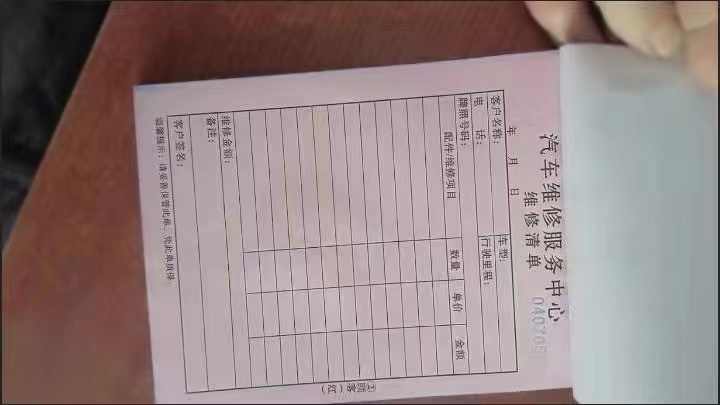 汽车维修服务中心
维修清单
年 月 日
客户名称: 车型:
电话: 行驶里程:
牌照号码:
配件/维修项目 数量 单价 金额
维修金额:
备注:
客户签名:
温馨提示:请妥善保管此单,凭此单质保